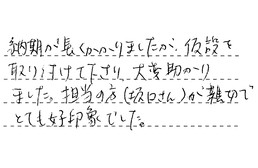 納期が長くかかりましたが、仮設を
取り付けて下さり、大変助かり
ました。担当の方(坂口さん)が親切で
とても好印象でした。